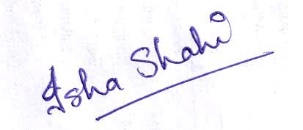 Isha Shahi